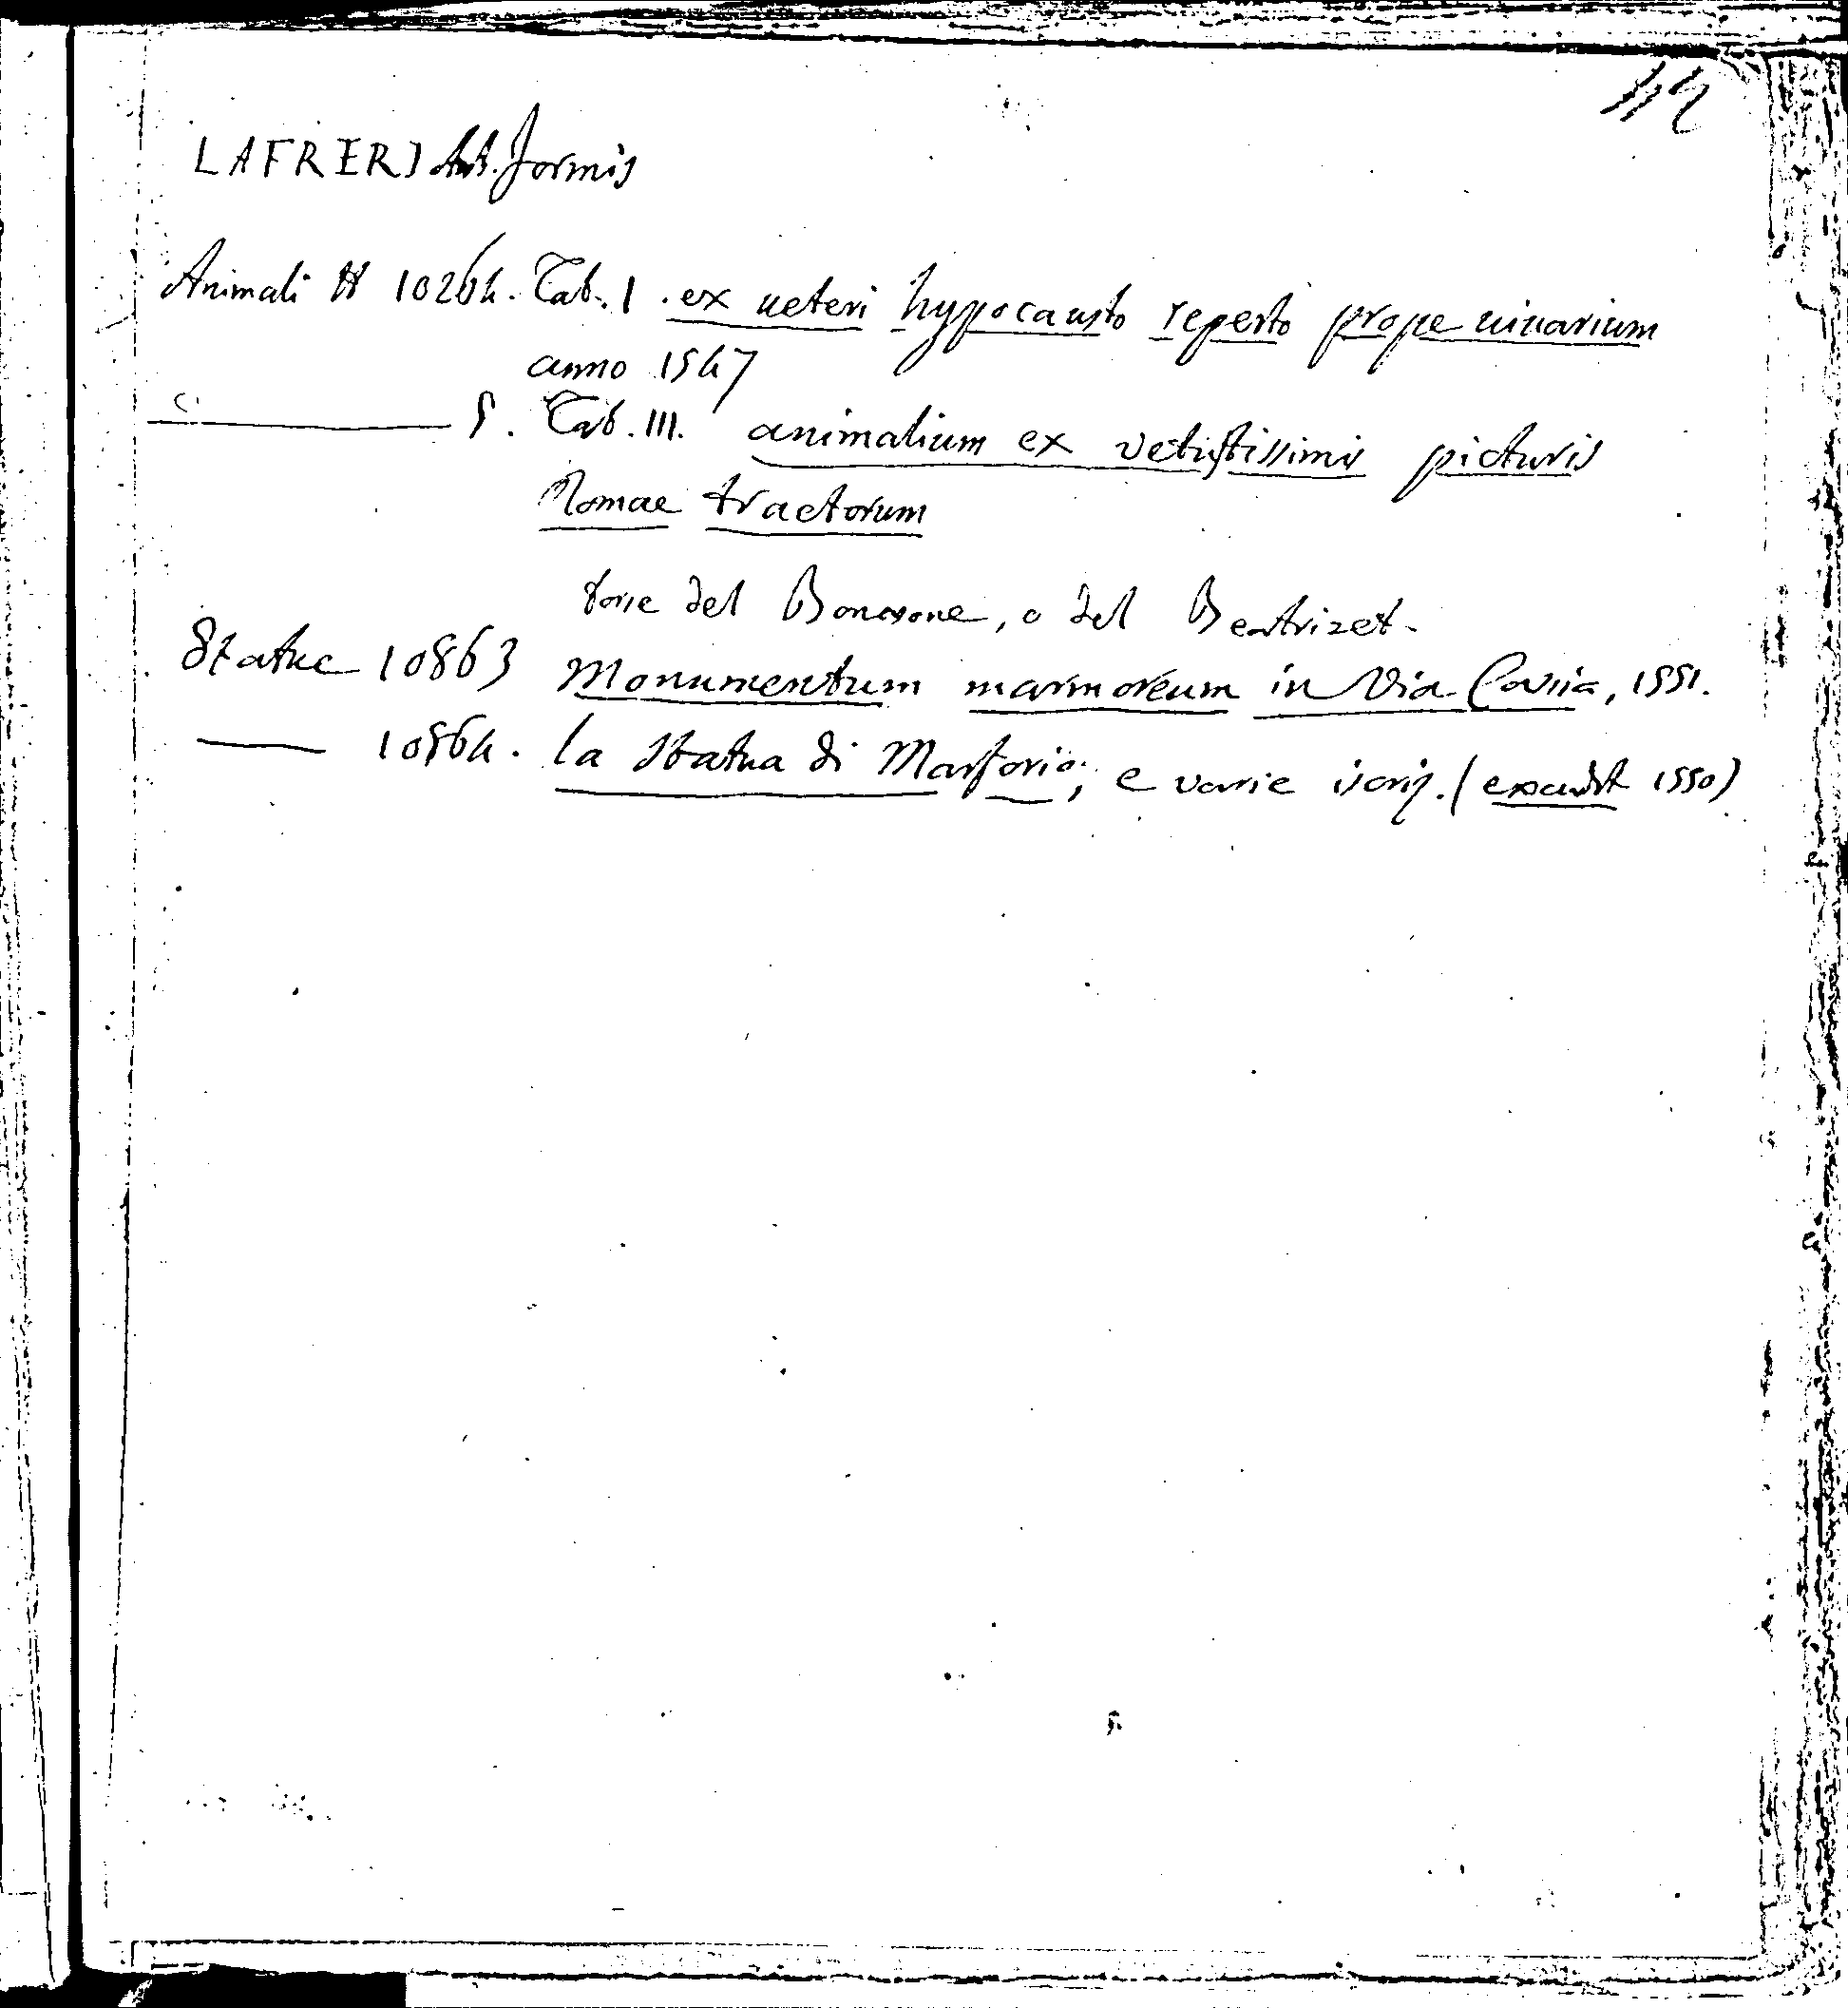 42
LAFRERJ Ant. formis
Animali H 10264. Tab. I. ex ueteri hypocausto reperto prope uiuarium
anno 1547
5. Tab. III. animalium ex vetustissimis picturis
Romae tractorum
forse del Bonasone, o del Beatrizet.
Statue 10863 Monumentum marmoreum in Via Cassia, 1551.
10864. la statua di Marforio; e varie iscriz. (excudit 1550)